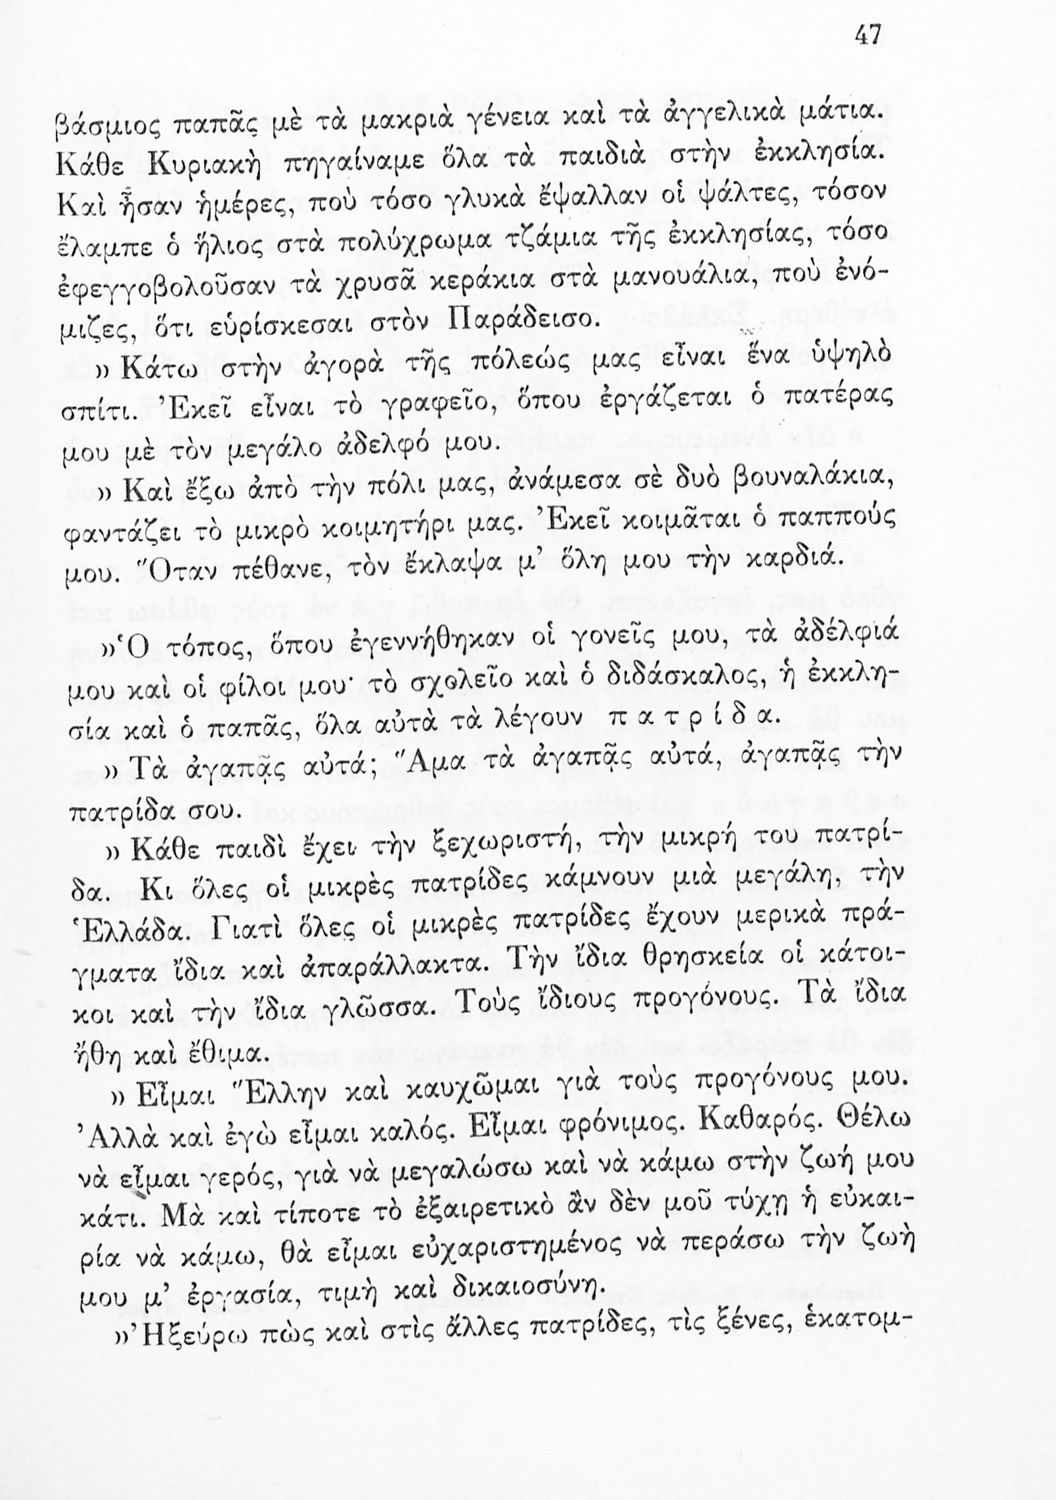 47
βάσμιος παπᾶς μὲ τὰ μακριὰ γένεια καὶ τὰ ἀγγελικὰ μάτια.
Κάθε Κυριακὴ πηγαίναμε ὅλα τὰ παιδιὰ στὴν ἐκκλησία.
Καὶ ἦσαν ἡμέρες, ποὺ τόσο γλυκὰ ἔψαλλαν οἱ ψάλτες, τόσον
ἔλαμπε ὁ ἥλιος στὰ πολύχρωμα τζάμια τῆς ἐκκλησίας, τόσο
ἐφεγγοβολοῦσαν τὰ χρυσᾶ κεράκια στὰ μανουάλια, ποὺ ἐνό-
μιζες, ὅτι εὑρίσκεσαι στὸν Παράδεισο.
» Κάτω στὴν ἀγορὰ τῆς πόλεώς μας εἶναι ἕνα ὑψηλὸ
σπίτι. Ἐκεῖ εἶναι τὸ γραφεῖο, ὅπου ἐργάζεται ὁ πατέρας
μου μὲ τὸν μεγάλο ἀδελφό μου.
» Καὶ ἔξω ἀπὸ τὴν πόλι μας, ἀνάμεσα σὲ δυὸ βουναλάκια,
φαντάζει τὸ μικρὸ κοιμητήρι μας. Ἐκεῖ κοιμᾶται ὁ παππούς
μου. Ὅταν πέθανε, τὸν ἔκλαψα μ’ ὅλη μου τὴν καρδιά.
»Ὁ τόπος, ὅπου ἐγεννήθηκαν οἱ γονεῖς μου, τὰ ἀδέλφιά
μου καὶ οἱ φίλοι μου· τὸ σχολεῖο καὶ ὁ διδάσκαλος, ἡ ἐκκλη-
σία καὶ ὁ παπᾶς, ὅλα αὐτὰ τὰ λέγουν π α τ ρ ί δ α.
» Τὰ ἀγαπᾷς αὐτά; Ἅμα τὰ ἀγαπᾷς αὐτά, ἀγαπᾷς τὴν
πατρίδα σου.
» Κάθε παιδὶ ἔχει τὴν ξεχωριστή, τὴν μικρή του πατρί-
δα. Κι ὅλες οἱ μικρὲς πατρίδες κάμνουν μιὰ μεγάλη, τὴν
Ἑλλάδα. Γιατὶ ὅλες οἱ μικρὲς πατρίδες ἔχουν μερικὰ πρά-
γματα ἴδια καὶ ἀπαράλλακτα. Τὴν ἴδια θρησκεία οἱ κάτοι-
κοι καὶ τὴν ἴδια γλῶσσα. Τοὺς ἴδιους προγόνους. Τὰ ἴδια
ἤθη καὶ ἔθιμα.
» Εἶμαι Ἕλλην καὶ καυχῶμαι γιὰ τοὺς προγόνους μου.
Ἀλλὰ καὶ ἐγὼ εἶμαι καλός. Εἶμαι φρόνιμος. Καθαρός. Θέλω
νὰ εἶμαι γερός, γιὰ νὰ μεγαλώσω καὶ νὰ κάμω στὴν ζωή μου
κάτι. Μὰ καὶ τίποτε τὸ ἐξαιρετικὸ ἂν δὲν μοῦ τύχῃ ἡ εὐκαι-
ρία νὰ κάμω, θὰ εἶμαι εὐχαριστημένος νὰ περάσω τὴν ζωὴ
μου μ’ ἐργασία, τιμὴ καὶ δικαιοσύνη.
»Ἠξεύρω πὼς καὶ στὶς ἄλλες πατρίδες, τὶς ξένες, ἑκατομ-